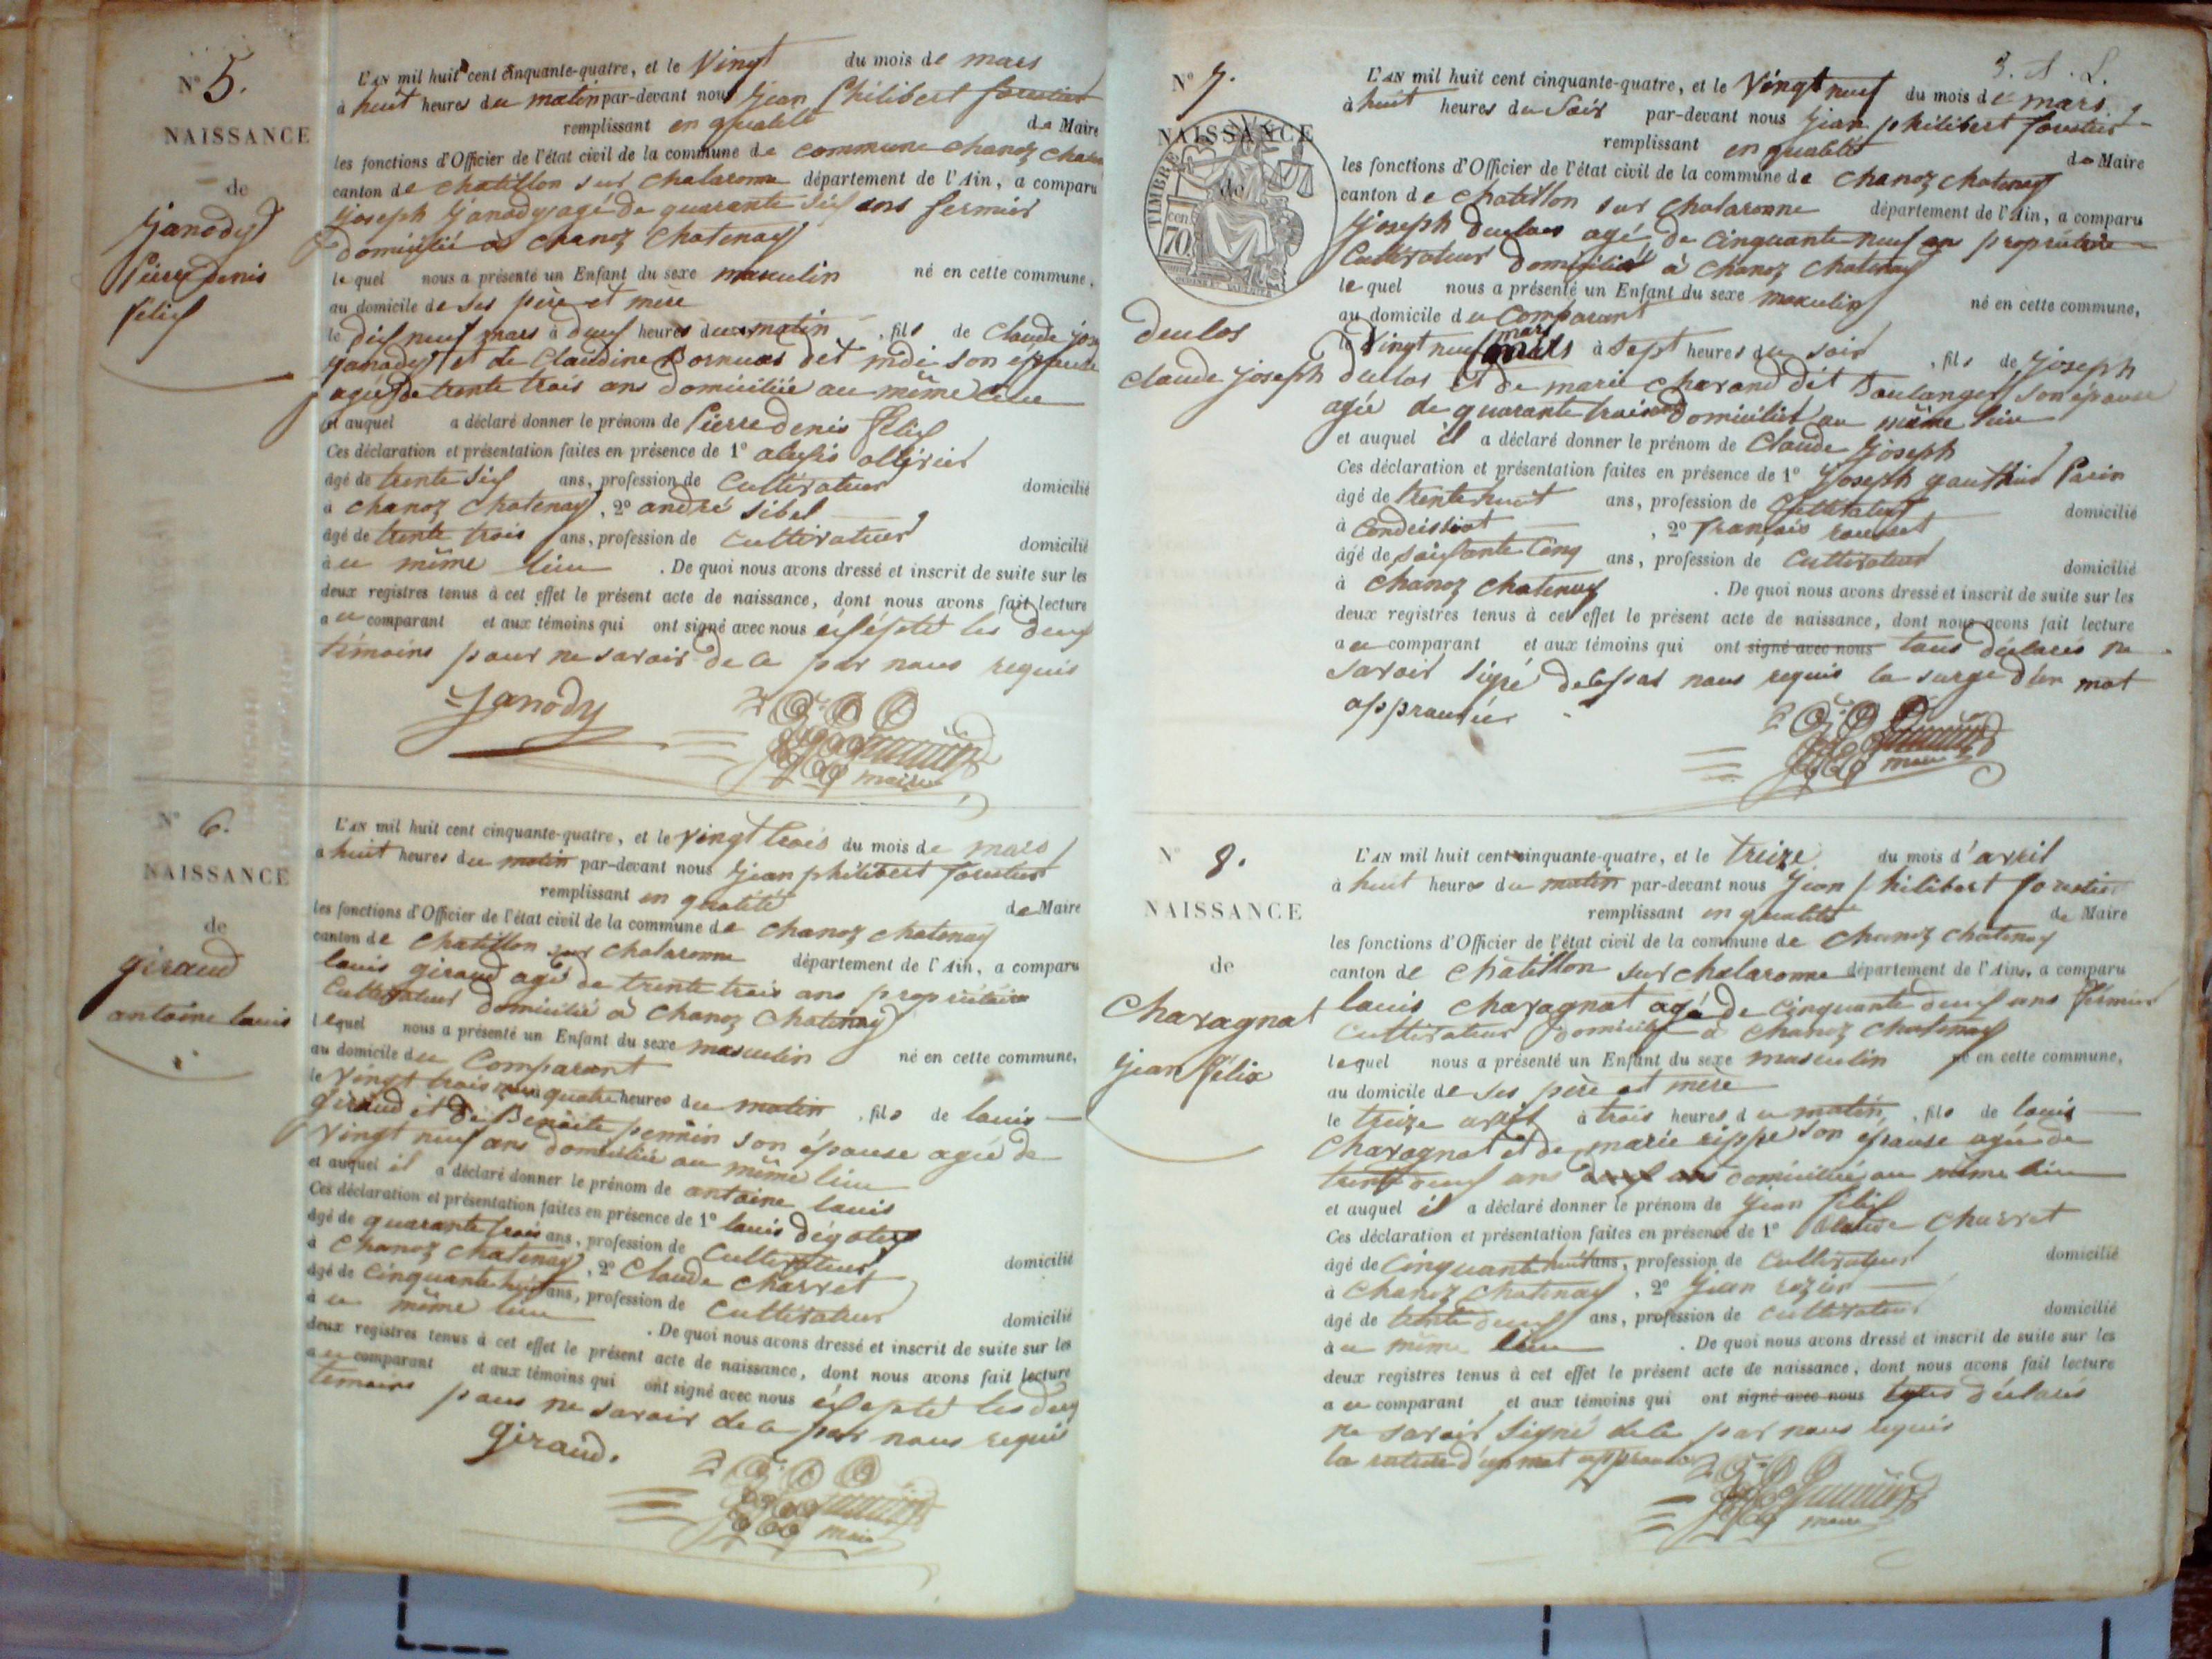 N° 5.
NAISSANCE
de
Janody
Pierre denis
félix
L'AN mil huit cent cinquante-quatre, et le Vingt du mois de mars
à huit heures du matin par-devant nous Jean Philibert forestier
remplissant en qualité de Maire
les fonctions d'Officier de l'état civil de la commune de commune chanoz chaten
canton de chatillon sur chalaronne département de l'Ain, a comparu
Joseph Janody agé de quarante six ans fermier
domicilié à chanoz chatenay
lequel nous a présenté un Enfant du sexe masculin né en cette commune,
au domicile de ses père et mère
le dix neuf mars à deux heures du matin , fils de Claude Jos
Janody et de Claudine Bornuas dit midi son épouse
agée de trente trois ans domiciliée au même lieu
et auquel a déclaré donner le prénom de Pierre denis félix
Ces déclaration et présentation faites en présence de 1° alexis ollivier
âgé de trente six ans, profession de Cultivateur domicilié
à chanoz chatenay , 2° andré Sibel
âgé de trente trois ans, profession de cultivateur domicilié
à u même lieu . De quoi nous avons dressé et inscrit de suite sur les
deux registres tenus à cet effet le présent acte de naissance, dont nous avons fait lecture
au comparant et aux témoins qui ont signé avec nous éxépté les deux
témoins pour ne savoir de ce par nous requis
Janody
maire
N° 6.
NAISSANCE
de
giraud
antoine louis
L'AN mil huit cent cinquante-quatre, et le Vingt trois du mois de mars
à huit heures du matin par-devant nous Jean philibert forestier
remplissant en qualité de Maire
les fonctions d'Officier de l'état civil de la commune de chanoz chatenay
canton de Chatillon sur chalaronne département de l'Ain, a comparu
louis giraud agé de trente trois ans propriétaire
Cultivateur domicilié à Chanoz Chatenay
lequel nous a présenté un Enfant du sexe masculin né en cette commune,
au domicile du Comparant
le Vingt trois mars quatre heures du matin , fils de louis
giraud et de Benoite pennin son épouse agée de
Vingt neuf ans domiciliée au même lieu
et auquel il a déclaré donner le prénom de antoine louis
Ces déclaration et présentation faites en présence de 1° louis dégoley
âgé de quarante trois ans, profession de Cultivateur domicilié
à Chanoz chatenay , 2° Claude Charvet
âgé de Cinquante huit ans, profession de Cultivateur domicilié
à u même lieu . De quoi nous avons dressé et inscrit de suite sur les
deux registres tenus à cet effet le présent acte de naissance, dont nous avons fait lecture
au comparant et aux témoins qui ont signé avec nous éxepté les deux
témoins pour ne savoir de ce par nous requis
giraud.
maire
3. A. L.
N° 7.
NAISSANCE
de
TIMBRE
cen
70
duclos
claude joseph
L'AN mil huit cent cinquante-quatre, et le Vingt neuf du mois de mars,
à huit heures du Soir par-devant nous Jean philibert forestier
remplissant en qualité de Maire
les fonctions d'Officier de l'état civil de la commune de chanoz chatenay
canton de chatillon sur chalaronne département de l'Ain, a comparu
Joseph duclos agé de cinquante neuf ans propriétaire
Cultivateur domicilié à chanoz chatenay
lequel nous a présenté un Enfant du sexe masculin né en cette commune,
au domicile du Comparant
le Vingt neuf mars à sept heures du soir , fils de Joseph
duclos et de marie charand dit Boulanger son épouse
agée de quarante trois ans domiciliée au même lieu
et auquel il a déclaré donner le prénom de Claude Joseph
Ces déclaration et présentation faites en présence de 1° Joseph gauthier Parin
âgé de trente huit ans, profession de Cultivateur domicilié
à Condeissiat , 2° françois rousset
âgé de soixante Cinq ans, profession de Cultivateur domicilié
à Chanoz chatenay . De quoi nous avons dressé et inscrit de suite sur les
deux registres tenus à cet effet le présent acte de naissance, dont nous avons fait lecture
au comparant et aux témoins qui ont signé avec nous tous déclarés ne
savoir signé de ce par nous requis la surge d'un mot
approuvée
maire
N° 8.
NAISSANCE
de
Charagnat
Jean félix
L'AN mil huit cent cinquante-quatre, et le treize du mois d'avril
à huit heures du matin par-devant nous Jean philibert forestier
remplissant en qualité de Maire
les fonctions d'Officier de l'état civil de la commune de chanoz chatenay
canton de Chatillon sur chalaronne département de l'Ain, a comparu
louis charagnat agé de cinquante deux ans fermier
Cultivateur domicilié à Chanoz Chatenay
lequel nous a présenté un Enfant du sexe masculin né en cette commune,
au domicile de ses père et mère
le treize avril à trois heures du matin , fils de louis
Charagnat et de marie rippe son épouse agée de
trente deux ans deux ans domiciliée au même lieu
et auquel il a déclaré donner le prénom de Jean félix
Ces déclaration et présentation faites en présence de 1° Claude Charvet
âgé de Cinquante huit ans, profession de Cultivateur domicilié
à Chanoz Chatenay , 2° Jean rozier
âgé de trente deux ans, profession de cultivateur domicilié
à u même lieu . De quoi nous avons dressé et inscrit de suite sur les
deux registres tenus à cet effet le présent acte de naissance, dont nous avons fait lecture
au comparant et aux témoins qui ont signé avec nous tous déclarés
ne savoir signé de ce par nous requis
la rature d'un mot approuvé
maire